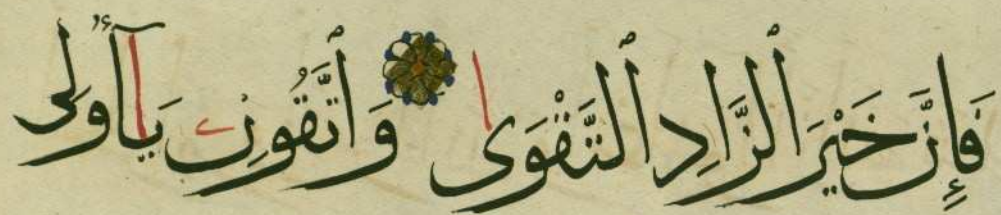 فَإِنَّ خَيْرَ ٱلزَّادِ ٱلتَّقْوَىٰ وَٱتَّقُونِ يَـٰٓأُولِى